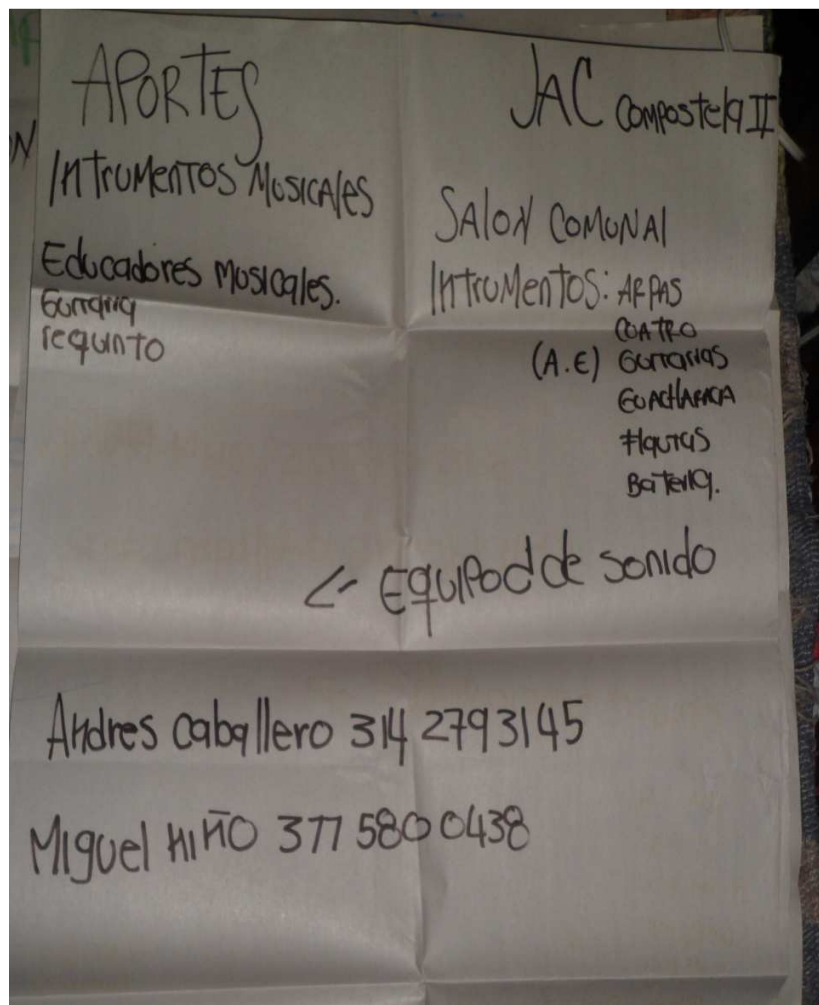 APORTES
Intrumentos Musicales
Educadores musicales.
Guitarra
requinto
JAC COMPOSTELA II
SALON COMUNAL
Intrumentos: ARPAS
CUATRO
(A.E) Guitarras
GUACHARACA
Flautas
Bateria.
<- Equipod de sonido
Andres Caballero 314 2793145
Miguel NIÑO 317 580 0438